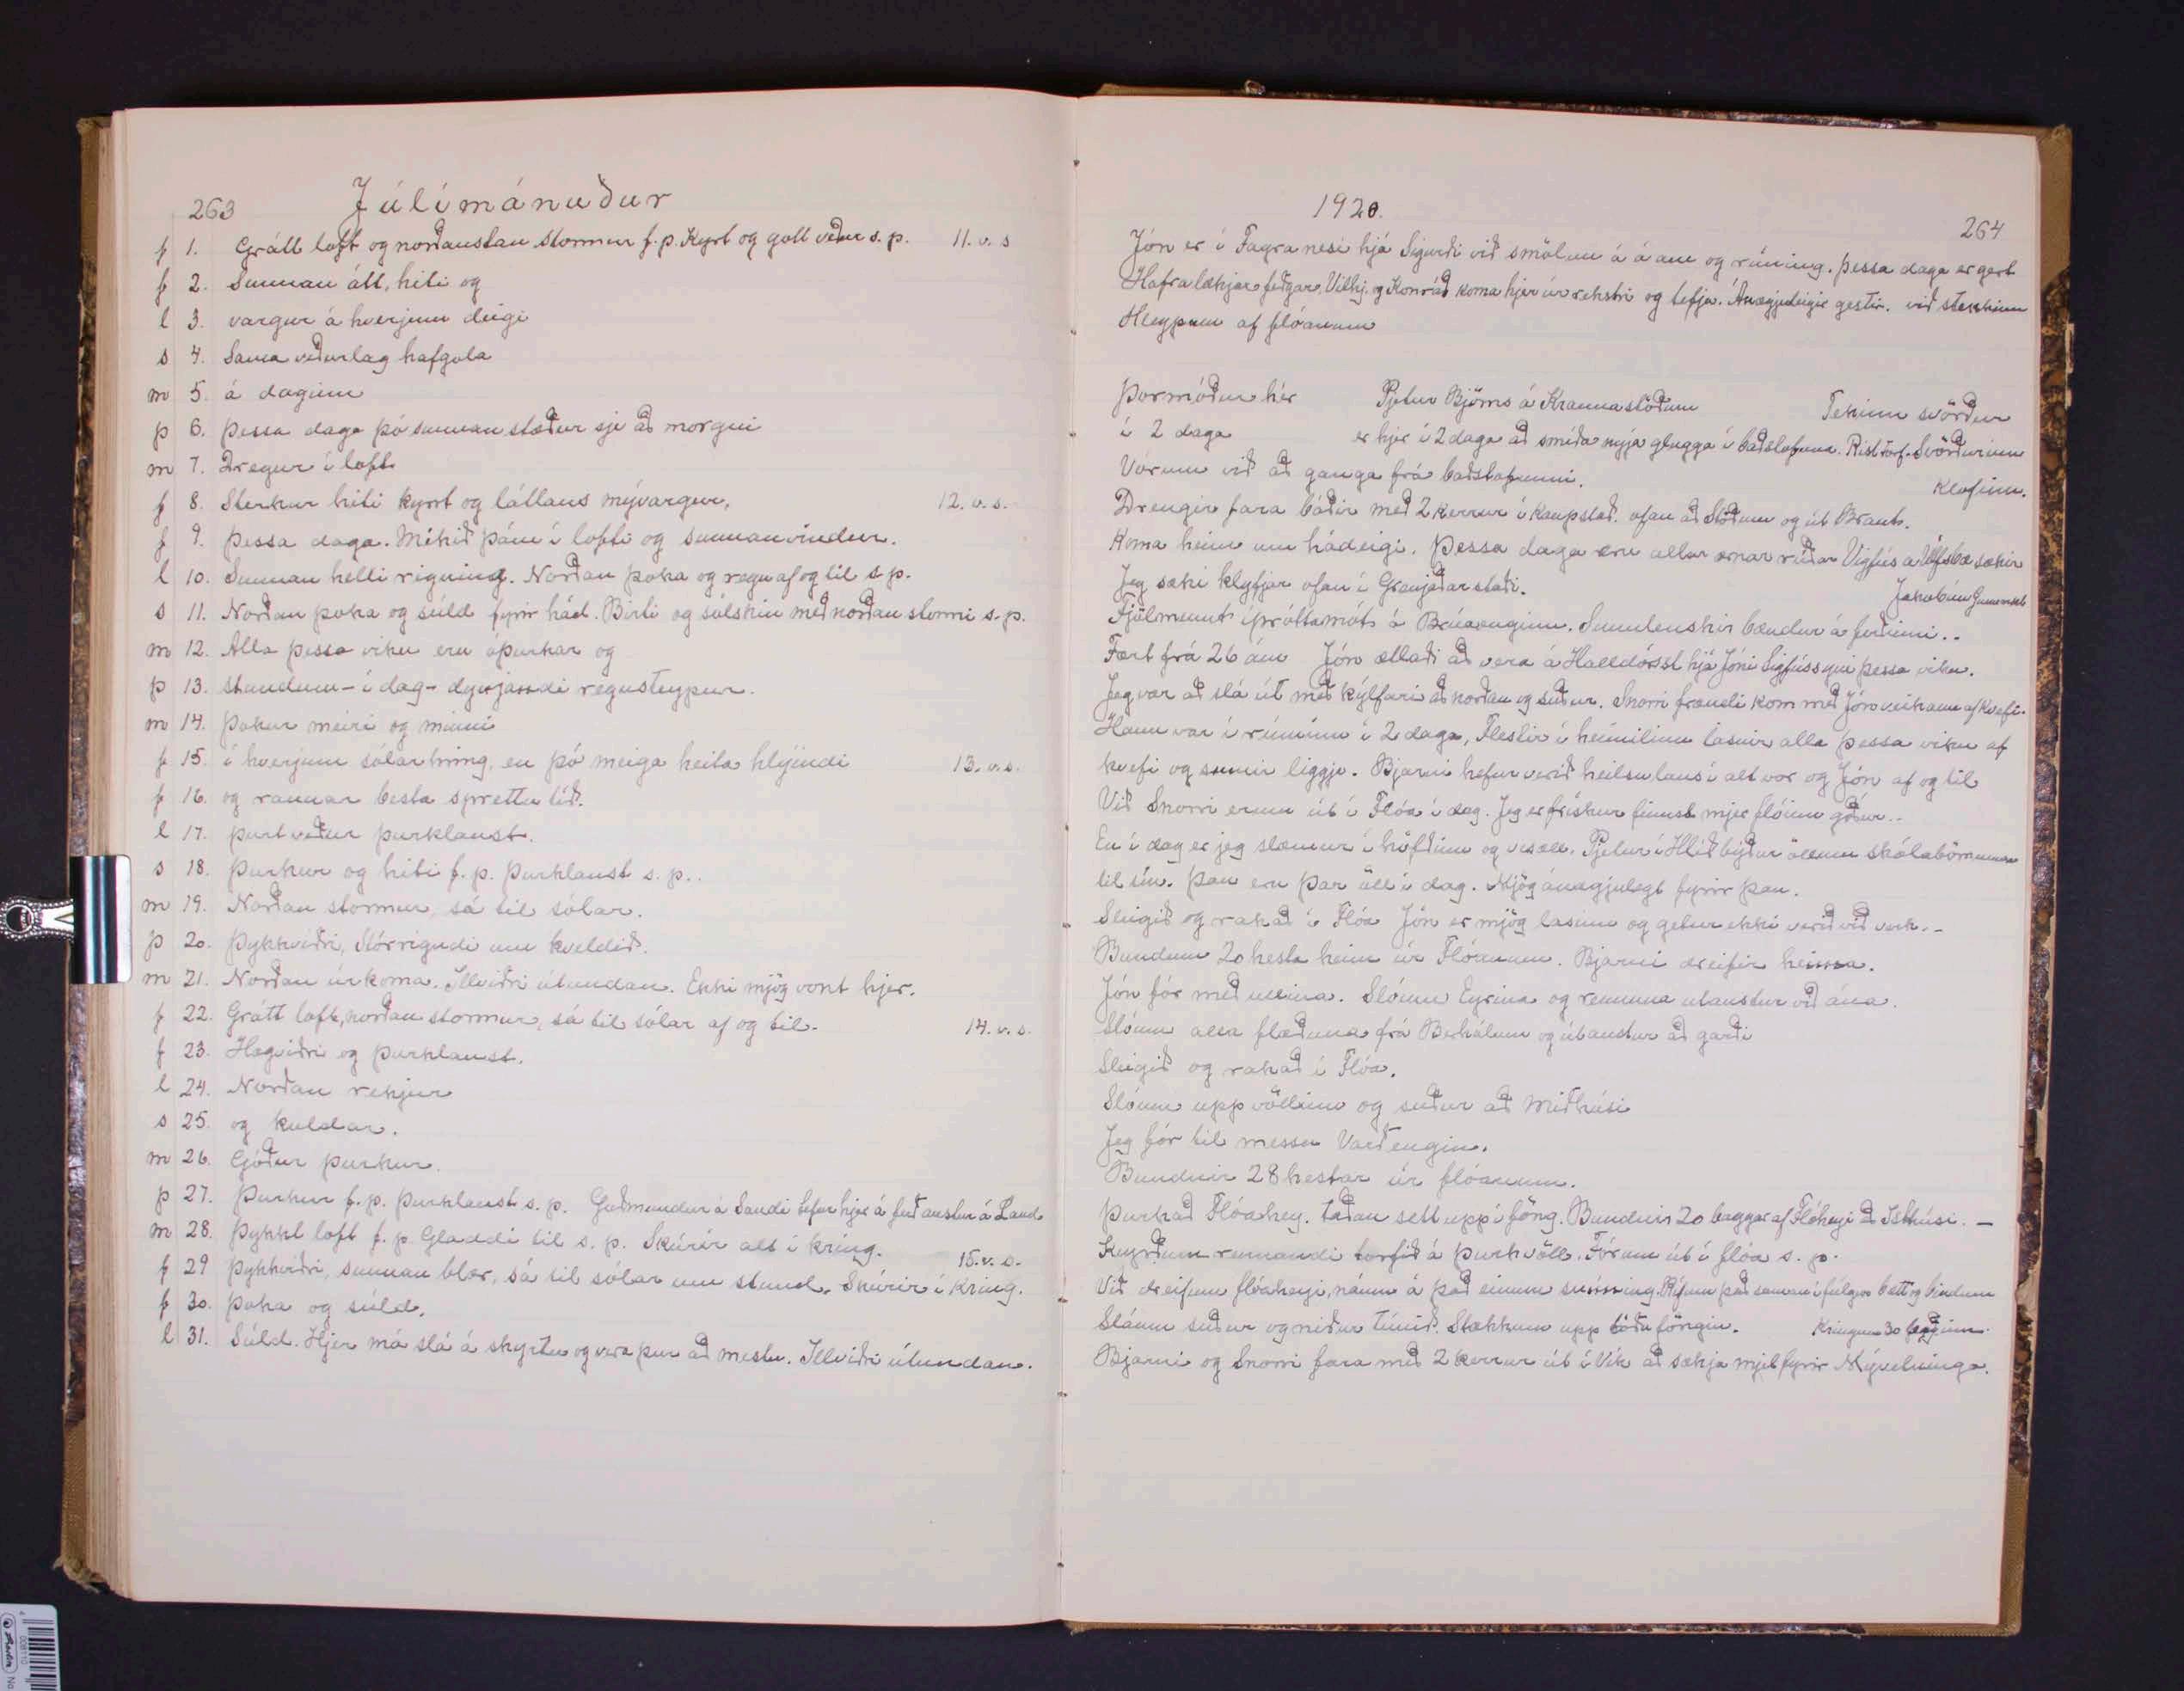 263 Júlímánuður
f 1. Grátt loft og norðaustan stormur f.p. Kyrt og gott veður s.p. 11. v. s
f 2. Sunnan átt, hiti og
l 3. vargur á hverjum deigi
s 4. Sama veðurlag hafgola
m 5. á daginn
þ 6. þessa daga þó sunnan stæður sje að morgni
m 7. Dregur í loft
f 8. Sterkur hiti kyrt og látlaus mývargur. 12. v. s.
f 9. þessa daga. Mikið þám í lofti og sunnanvindur.
l 10. Sunnan helli rigning. Norðan þoka og regn af og til s.p.
s 11. Norðan þoka og súld fyrir hád. Birti og sólskin með norðan stormi s.p.
m 12. Alla þessa viku eru óþurkar og
þ 13. stundum - í dag - dynjandi regnsteypur.
m 14. þokur meiri og minni
f 15. í hverjum sólarhring, en þó meiga heita hlýindi 13. v. s.
f 16. og rannar besta sprettu tíð.
l 17. þurt veður þurklaust.
s 18. Þurkur og hiti f.p. Þurklaust s.p..
m 19. Norðan stormur, sá til sólar.
þ 20. Þykkviðri, Stórrigndi um kveldið.
m 21. Norðan úrkoma. Illviðri útundan. Ekki mjög vont hjer.
f 22. Grátt loft, norðan stormur, sá til sólar af og til. 14. v. s.
f 23. Hægviðri og þurklaust.
l 24. Norðan rekjur
s 25. og kuldar.
m 26. Góður þurkur.
þ 27. Þurkur f.p. Þurklaust s.p. Guðmundur á Sandi tefur hjer á ferð austur á Land
m 28. Þykkt loft f.p. Gladdi til s.p. Skúrir alt í kring.
f 29 Þykkviðri, sunnan blær, sá til sólar um stund. Skúrir í kring. 15. v. s.
f 30. Þoka og súld.
l 31. Súld. Hjer má slá á skyrtu og vera þur að mestu. Illviðri útundan.
1920. 264
Jón er í Fagranesi hjá Sigurði við smölun á ám og rúning. þessa daga er gert
Hafralækjar feðgar, Vilhj. og Konráð koma hjer úr rekstri og tefja. Ánægjulegir gestir. við stekkinn
Hleypum af flóanum
Þormóður hér Pjetur Björns á Krannastöðum Tekinn svörður
í 2 daga er hjer í 2 daga að smíða nýja glugga í baðstofuna. Rist torf. Svörðurinn
Vórum við að ganga frá baðstofunni. klofinn.
Drengir fara báðir með 2 kerrur í kaupstað. ofan að Stöðum og út Braut.
Koma heim um hádeigi. Þessa daga eru allar ær rúðar Vigfús á Úlfsbæ sækir
Jeg sæki klyfjar ofan í Grenjaðarstaði. Jakobínu
Fjölmennt íþróttamót á Brúarenginu. Sunnlenskir bændur á ferðinni..
Fært frá 26 ám Jón ætlaði að vera á Halldórsst hjá Jóni Sigfússyni þessa viku.
Jeg var að slá út með kýlfari að norðan og suður. Snorri frændi kom með Jón veikann af kvefi.
Hann var í rúminu í 2 daga, Flestir í heimilinu lasnir alla þessa viku af
kvefi og sumir liggja. Bjarni hefur verið heilsulaus í alt vor og Jón af og til
Við Snorri erum út í Flóa í dag. Jeg er frískur finnst mjer flóinn góður..
En í dag er jeg slæmur í höfðinu og vesæll. Pjetur í Hlíð býður öllum skólabörnunum
til sín. Þau eru þar öll í dag. Mjög ánægjulegt fyrir þau.
Sleigið og rakað í Flóa Jón er mjög lasinn og getur ekki verið við verk. -
Bundum 20 hesta heim úr Flóanum. Bjarni dreifir heima.
Jón fór með ullina. Slóum Eyrina og rennuna utaustur við ána.
Slóum alla flæðuna frá Berhálum og útaustur að garði
Sleigið og rakað í Flóa.
Slóum uppvöllinn og suður að Miðhúsi
Jeg fór til messu Varðengin.
Bundnir 28 hestar úr flóanum.
Þurkað Flóahey. taðan sett upp í föng. Bundnir 20 baggar af Flóheyi að Isthúsi. -
Keyrðum rennandi torfið á þurkvöll. Fórum út í flóa s.p.
Við dreifum flóaheyi, náum á það einum snúning. Rifjum það saman í fúlgur bætt og bindum
Sláum suður og niður túnið. Stækkum upp töðu föngin. Kringum 30
Bjarni og Snorri fara með 2 kerrur út í Vík að sækja mjöl fyrir Mývetninga.